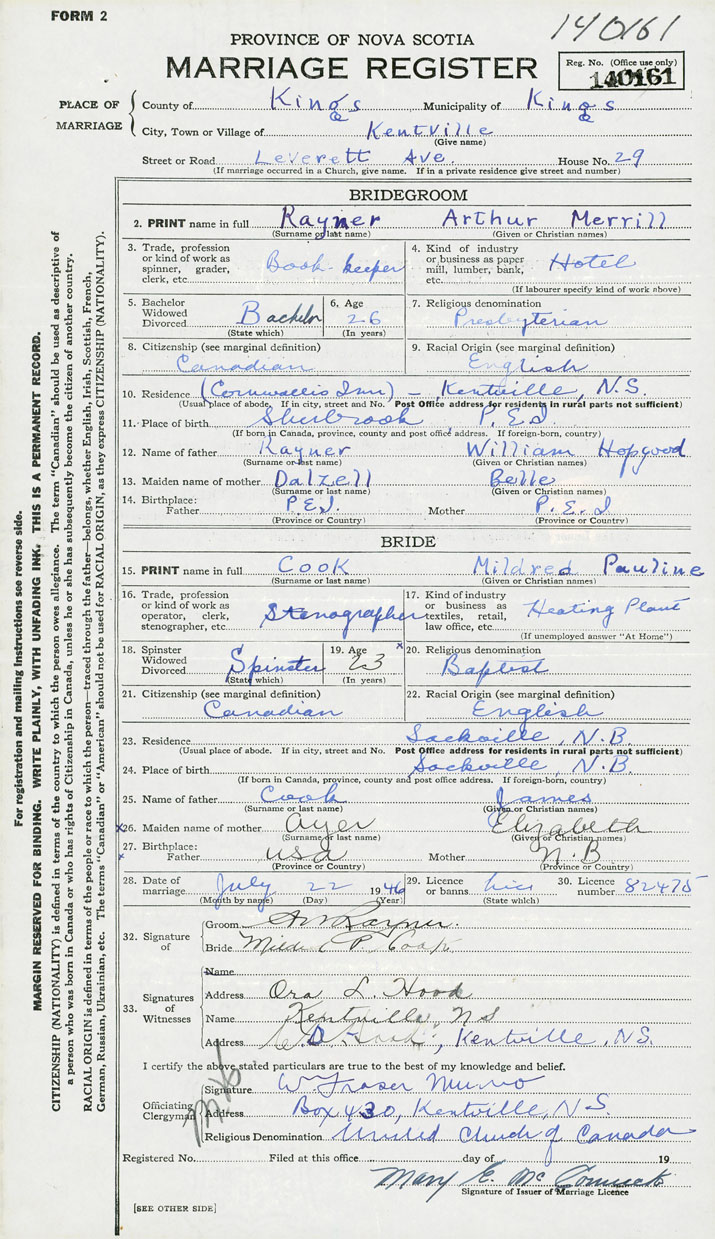 FORM 2
140161
PROVINCE OF NOVA SCOTIA
MARRIAGE REGISTER
Reg. No. (Office use only)
140161
PLACE OF MARRIAGE
County of Kings Municipality of Kings
City, Town or Village of Kentville
(Give name)
Street or Road Leverett Ave. House No. 29
(If marriage occurred in a Church, give name. If in a private residence give street and number)
BRIDEGROOM
2. PRINT name in full Rayner Arthur Merrill
(Surname or last name) (Given or Christian names)
3. Trade, profession or kind of work as spinner, grader, clerk, etc. Book-keeper
4. Kind of industry or business as paper mill, lumber, bank, etc. Hotel
(If labourer specify kind of work above)
5. Bachelor Widowed Divorced Bachelor
(State which)
6. Age 26
(In years)
7. Religious denomination
Presbyterian
8. Citizenship (see marginal definition)
Canadian
9. Racial Origin (see marginal definition)
English
10. Residence (Cornwallis Inn) - Kentville, N.S
(Usual place of abode. If in city, street and No. Post Office address for residents in rural parts not sufficient)
11. Place of birth Sherbrook P.E.I.
(If born in Canada, province, county and post office address. If foreign-born, country)
12. Name of father Rayner William Hopgood
(Surname or last name) (Given or Christian names)
13. Maiden name of mother Dalzell Belle
(Surname or last name) (Given or Christian names)
14. Birthplace:
Father P.E.I. Mother P.E.I
(Province or Country) (Province or Country)
BRIDE
15. PRINT name in full Cook Mildred Pauline
(Surname or last name) (Given or Christian names)
16. Trade, profession or kind of work as operator, clerk, stenographer, etc. Stenographer
17. Kind of industry or business as textiles, retail, law office, etc. Heating Plant
(If unemployed answer "At Home")
18. Spinster Widowed Divorced Spinster
(State which)
19. Age x
23
(In years)
20. Religious denomination
Baptist
21. Citizenship (see marginal definition)
Canadian
22. Racial Origin (see marginal definition)
English
23. Residence Sackville, N.B.
(Usual place of abode. If in city, street and No. Post Office address for residents in rural parts not sufficient)
24. Place of birth Sackville, N.B.
(If born in Canada, province, county and post office address. If foreign-born, country)
25. Name of father Cook James
(Surname or last name) (Given or Christian names)
x26. Maiden name of mother Ayer Elizabeth
(Surname or last name) (Given or Christian names)
27. Birthplace:
x Father USA Mother N.B
(Province or Country) (Province or Country)
28. Date of marriage July 22 1946
(Month by name) (Day) (Year)
29. Licence or banns lic
(State which)
30. Licence number 82475
32. Signature of
Groom A M Rayner
Bride P. Cook
33. Signatures of Witnesses
Name
Address Ora L. Hood
Name Kentville, N S
Address Kentville, N.S.
I certify the above stated particulars are true to the best of my knowledge and belief.
Officiating Clergyman
Signature W Fraser Munro
Address Box 430, Kentville, N.S.
Religious Denomination United Church of Canada
Registered No. Filed at this office day of 19
Mary E. Mc
Signature of Issuer of Marriage Licence
[SEE OTHER SIDE]
For registration and mailing instructions see reverse side.
MARGIN RESERVED FOR BINDING. WRITE PLAINLY, WITH UNFADING INK. THIS IS A PERMANENT RECORD.
CITIZENSHIP (NATIONALITY) is defined in terms of the country to which the person owes allegiance. The term "Canadian" should be used as descriptive of
a person who was born in Canada or who has rights of Citizenship in Canada, unless he or she has subsequently become the citizen of another country.
RACIAL ORIGIN is defined in terms of the people or race to which the person—traced through the father—belongs, whether English, Irish, Scottish, French,
German, Russian, Ukrainian, etc. The terms "Canadian" or "American" should not be used for RACIAL ORIGIN, as they express CITIZENSHIP (NATIONALITY).